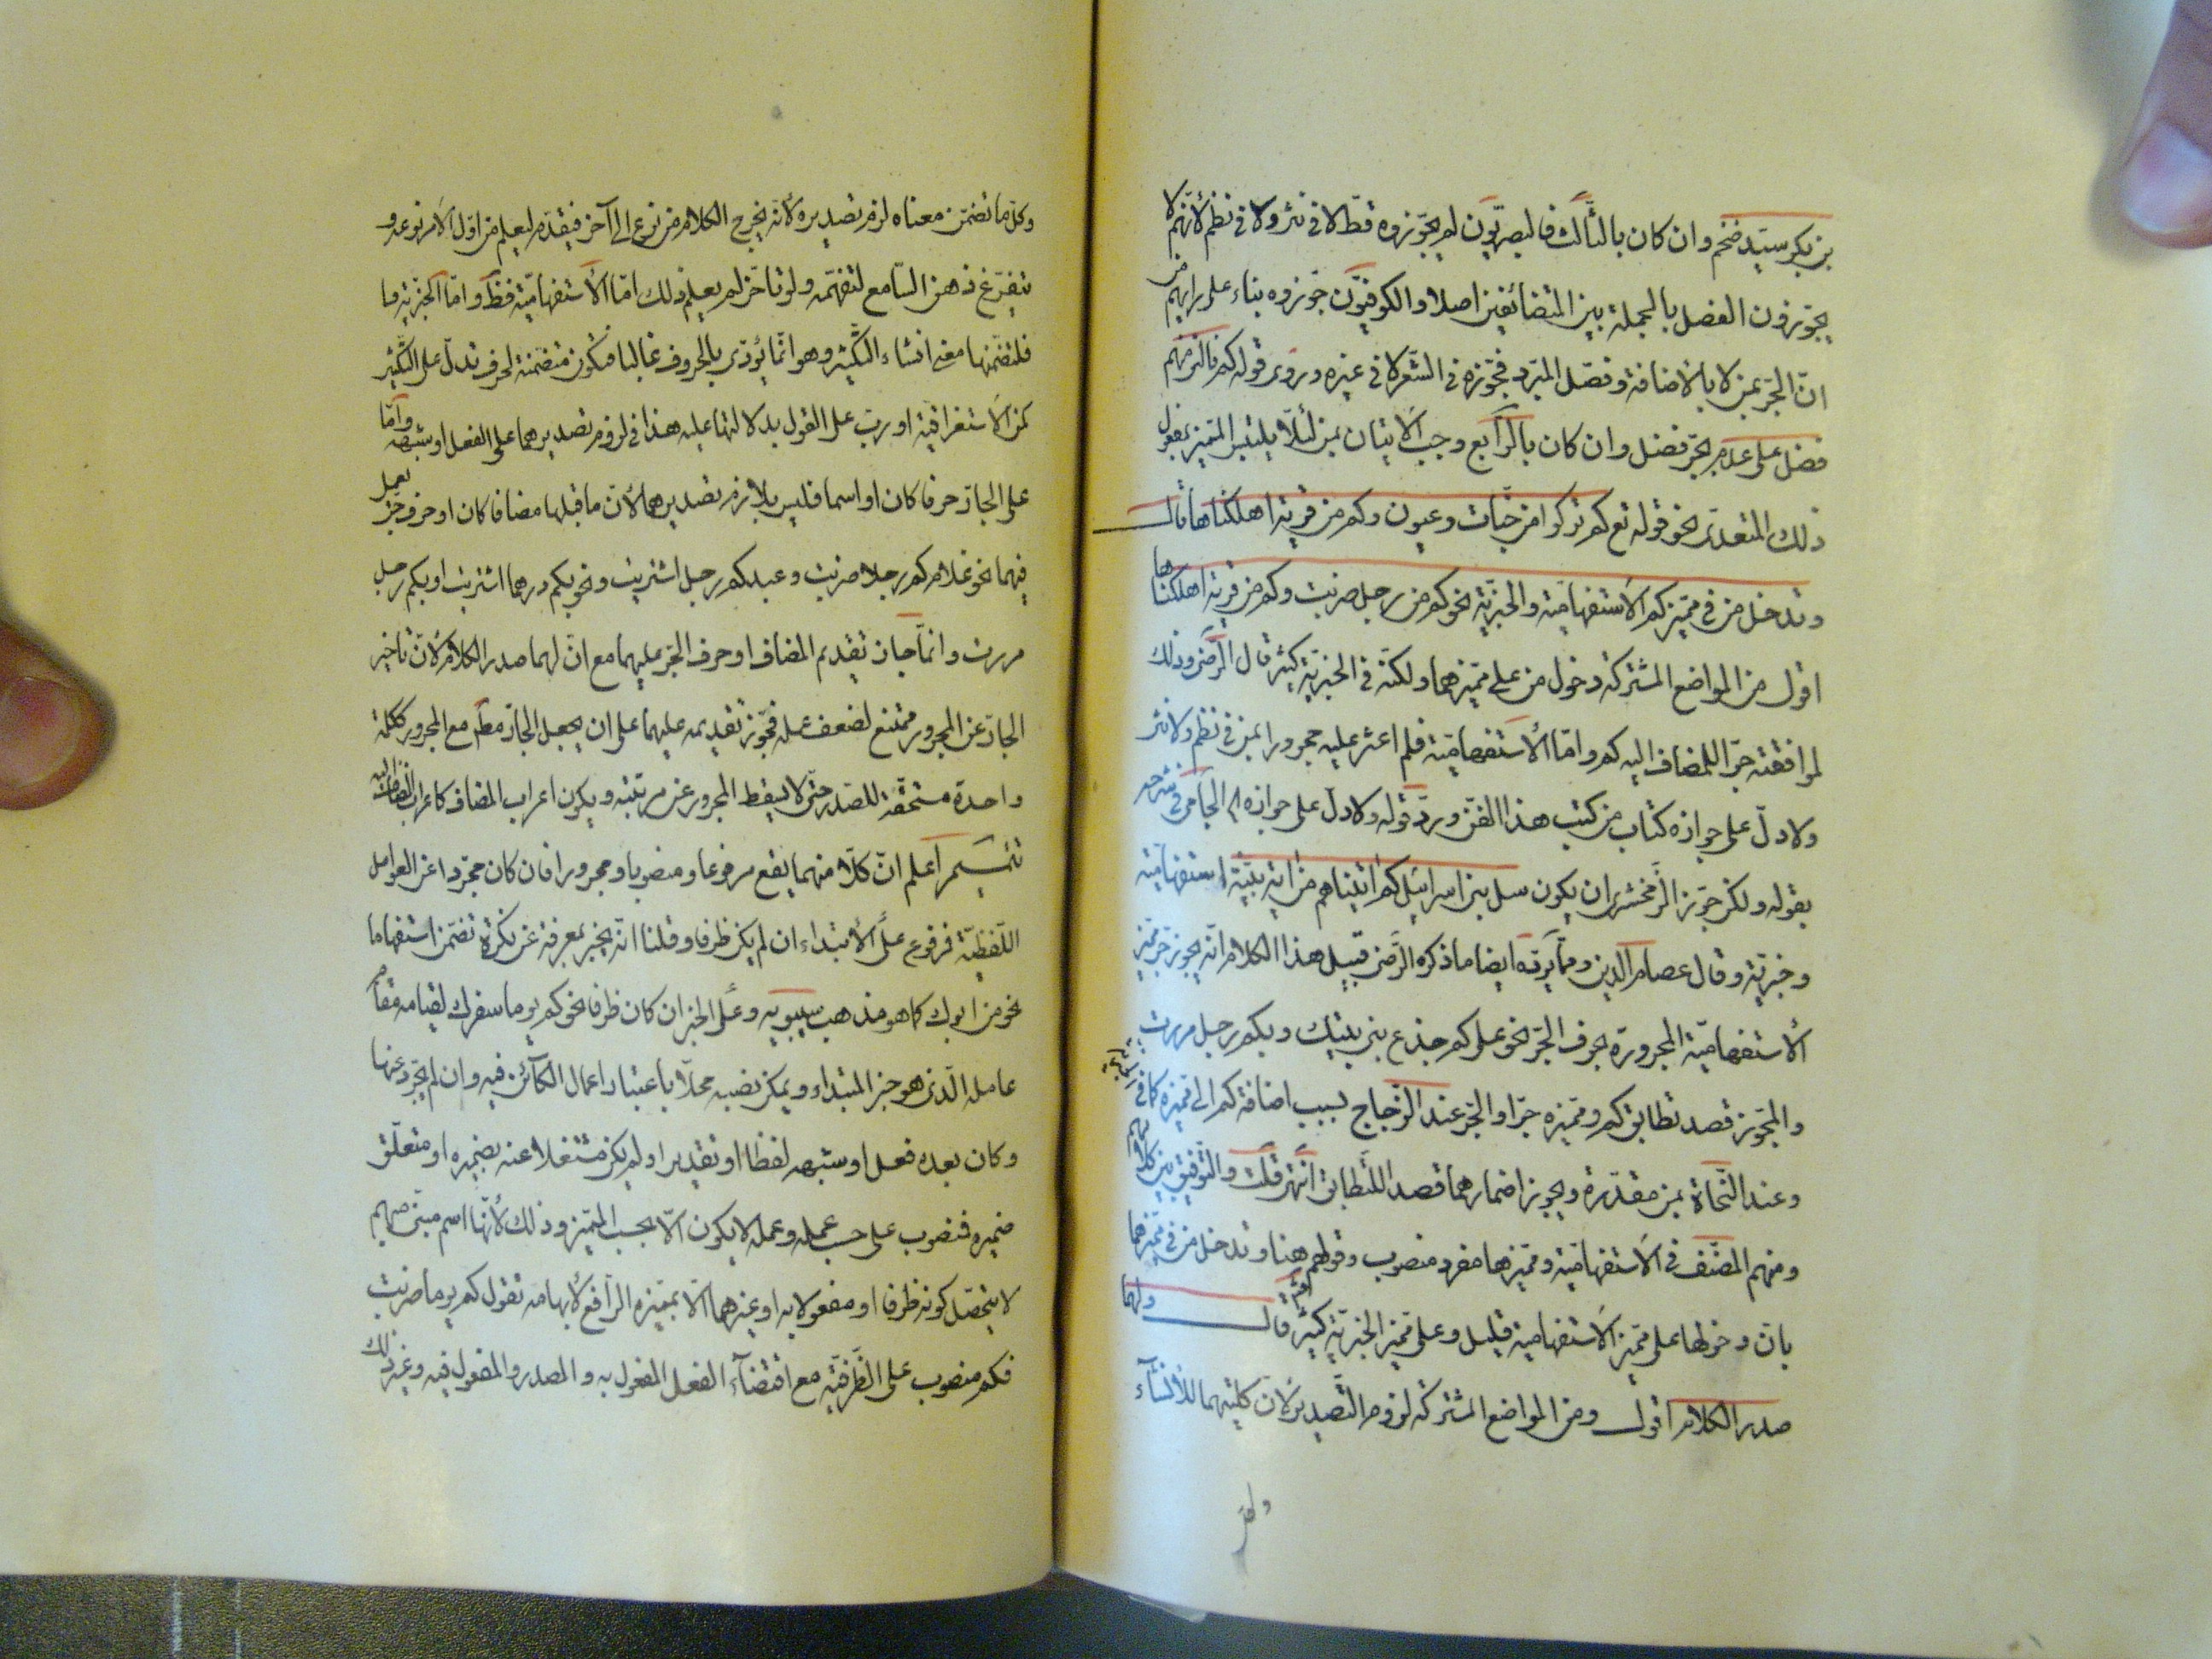 بن بكر سيّد ضخم وان كان بالثّالث فالبصريّون لم يجوّزوه قطّ لا في نثر ولا في نظم لأنّهم لا
يجوّزون الفصل بالجملة بين المتضائفين اصلا والكوفيّون جوّزوه بناء على رايهم من
انّ الجرّ بمن لا بالاضافة وفصّل المبرّد فجوّزه في الشّعر لا في غيره وروى قوله كم نالنى منهم
فضل على عدم بجرّ فضل وان كان بالرّابع وجب الاتيان بمن لئلّا يلتبس المميّز بمفعول
ذلك المتعدّى نحو قوله تع كم تركوا من جنّات وعيون وكم من قرية اهلكناها قال
وتدخل من في مميّز كم الاستفهاميّة والخبريّة نحو كم من رجل ضربت وكم من قرية اهلكناها
اقول من المواضع المشتركة دخول من على مميّزهما ولكنّه في الخبريّة كثير قال الرّضى وذلك
لموافقته جرّا للمضاف اليه كم وامّا الأستفهاميّة فلم اعثر عليه مجرورا بمن في نظم ولا نثر
ولا دلّ على جوازه كتاب من كتب هذا الفنّ وردّ قوله ولا دلّ على جوازه اه الجامى في شرحه
بقوله ولكن جوّز الزّمخشرى ان يكون سل بنى اسرائيل كم اتيناهم من اية بيّنة استفهاميّة
وخبريّة وقال عصام الدين وممّا يردّه ايضا ما ذكره الرّضى قبيل هذا الكلام انّه يجوز جرّ مميّز
الأستفهاميّة المجرورة بحرف الجرّ نحو على كم جذع بنى بيتك وبكم رجل مررت
والمجوّز قصد تطابق كم ومميّزه جرّا والجرّ عند الزّجاج بسبب اضافة كم الى مميّزه كما في الخبريّة
وعند النّحاة بمن مقدّرة ويجوز اضمارهما قصد اللتّطابق انتهى قلت والتّوفيق بين كلامهم
ومنهم المصّنف في الاستفهاميّة ومميّزها مفرد منصوب وقولهم هنا وتدخل من في مميّزهما
بانّ دخولها على مميّز الاستفهامية قليل وعلى مميّز الخبريّة كثير قال ولهما
صدر الكلام اقول ومن المواضع المشتركة لزوم التّصدير لانّ كلتيهما للأنشآء
وكلّ ما تضمّن معناه لزم تصديره لأنّه يخرج الكلام من نوع الى آخر فيقدّم ليعلم من اوّل الامر نوعه و
يتفرّغ ذهن السّامع لتفهّمه ولو تأخّر لم يعلم ذلك امّا الأستفهاميّة فظّ وامّا الخبريّة
فلتضمّنها معنى انشاء التّكثير وهو انّما يؤدّى بالحروف غالبا فتكون متضمّنة لحرف تدلّ على التّكثير
كمن الاستغراقيّة او ربّ على القول بدلالتها عليه هذا في لزوم تصديرهما على الفعل او شبهه وامّا
على الجارّ حرفا كان او اسما فليس بلازم تصديرهما لأنّ ما قبلها مضافا كان او حرف جرّ يعمل
فيهما نحو غلام كم رجلا ضربت وعبد كم رجل اشتريت ونحو بكم درهما اشتريت او بكم رجل
مررت وانّما جاز تقديم المضاف او حرف الجرّ عليهما مع انّ لهما صدر الكلام لأنّ تأخير
الجارّ عن المجرور ممتنع لضعف عمله فجوّز تقديمه عليهما على ان يجعل الجارّ مط مع المجرور ككلمة
واحدة مستحقّة للصّدر حتّى لا يسقط المجرور عن مرتبته ويكون اعراب المضاف كاعراب المضاف اليه
تتميم اعلم انّ كلّا منهما يقع مرفوعا ومنصوبا ومجرورا فان كان مجرّدا عن العوامل
اللّفظيّة فمرفوع على الأبتداء ان لم يكن ظرفا وقلنا انّه يخبر بمعرفة عن نكرة تضمّن استفهاما
نحو من ابوك كما هو مذهب سيبويه وعلى الخبر ان كان ظرفا نحو كم يوما سفرك لقيامه مقام
عامله الّذى هو خبر المبتداء ويمكن نصبه محلّا باعتبار اعمال الكائن فيه وان لم يجرّد عنها
وكان بعده فعل او شبهه لفظا او تقديرا ولم يكن مشتغلا عنه بضميره او متعلّق
ضميره فمنصوب على حسب عمله وعمله لا يكون الّا بحسب المميّز وذلك لأنّها اسم مبنىّ مبهم
لا يتحصّل كونه ظرفا او مفعولا به او غيرهما الّا بمميّزه الرّافع لأبهامه تقول كم يوما ضربت
فكم منصوب على الظّرفيّة مع اقتضآء الفعل المفعول به والمصدر والمفعول فيه وغير ذلك